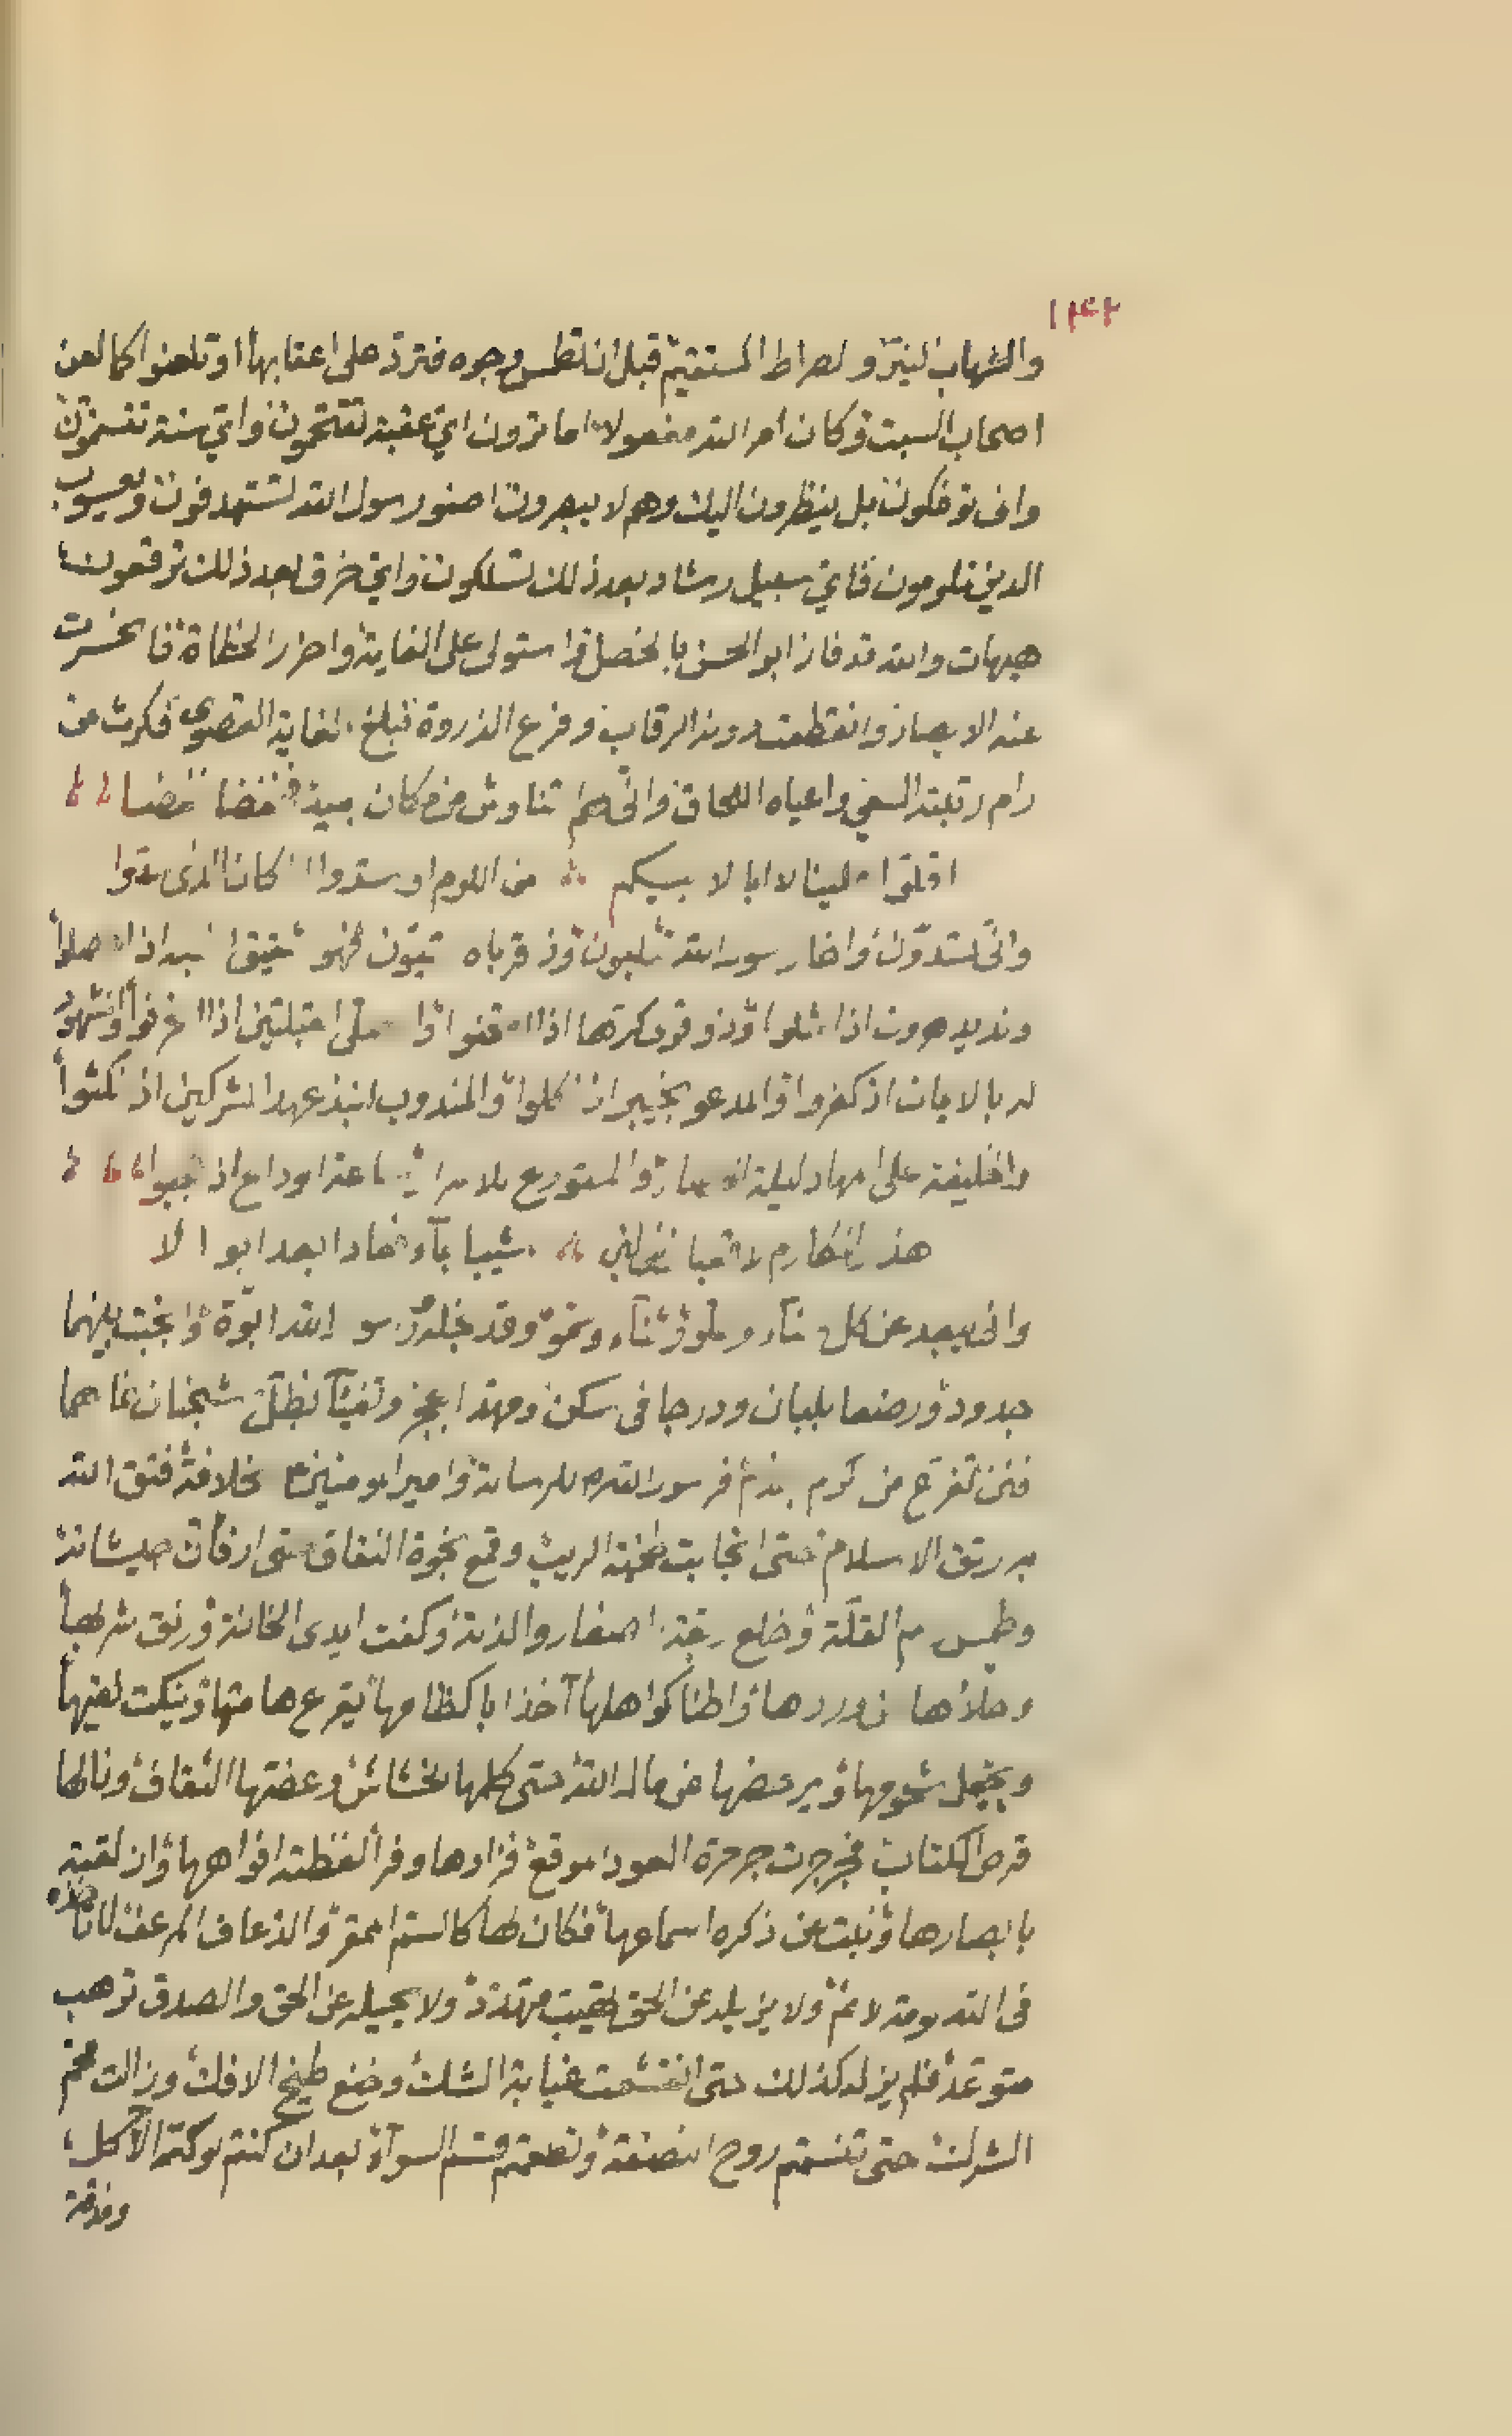 ١٤٢
والشهاب لنيّر و لصراط المستقيم قبل ان تطمس وجوه فتردّ على اعقابها او تلعنوا كما لعن
اصحاب السبت و كان امر الله مفعولا اما ترون ايّ عقبة تقتحمون و ايّ سنة تتسنمون
وانى توفكون بل ينظرون اليك وهم لا يبصرون اصنو رسول الله تستهدفون و يعسوب
الدين تلومون فايّ سبيل رشاد بعد ذلك تسلكون و ايّ خرق بعد ذلك ترقعون
هيهات والله قد فاز ابو الحسن بالخصل و استولى على الغاية و احرز الخطاة فانحسرت
عنه الابصار و انقطعت دونه الرقاب و فرع الذروة فبلغ الغاية القصوى فكرث من
رام رتبته السعي واعياه اللحاق وانّى لهم تناوش من مكان بعيد فخفضا خفضا
اقلّوا علينا لا ابا لا بيكم من اللوم او سدّوا كان الذى سدّوا
وانّى تسدّون و اخا رسول الله تثلبون و ذ قرباه تنبون فهو شقيق نسبه اذ صلوا
و نديد هرون اذ مثلوا و ذو قربى كبرتها اذا امتحنوا و ا صلّى القبلتين اذا انحرفوا و المشهود
له بالايمان اذ كفروا و المدعو بخيبر اذ نكلوا و المندوب لنبذ عهد المشركين اذ نكثوا
و الخليفة على المهاد ليلة الحصار و المستودع للاسرار ساعة الوداع اذ حجبوا
هذى المكارم لا قعبان من لبن شيبا بماء فعادا بعد ابوالا
وانّى يبعد عن كل سناء و علوّ و ثناء و سموّ وقد نجله و رسول الله ابوّة و انجبت بينهما
جدود و رضعا بلبان و درجا فى سكن و مهدا بحجر و تفيّئا بظلّ وشيجتان نماهما
فنن تفرّع من كرم جذم فرسول الله ص للرسالة و امير المومنين ع للخلافة فتق الله
به رتق الاسلام حتى انجابت طخية الريب و قمع نخوة النفاق حتى ارفأن جيشانه
و طمس رسم القلّة و خلع ربقة الصغار و الذلة و كفت ايدى الخائنة و رنق شربها
و حلأها عن وردها و اطئا كواهلها آخذا باكظامها يقرع هاماتها و ينكت نقيها
و يجمل شحومها و يرحضها من مال الله حتى كلمها الخشاش و عضتها الثقاف و نالها
قرص الكتاب فجرجرت جرجرة العود الموقع فزادها و فرا فلفظته افواهها و ازلقته
بابصارها و نبت عن ذكره اسماعها فكان لها كالسمّ الممقر و الذعاف المرعف لا تأخذه
فى الله لومة لائم و لا يزيله عن الحق تهيّب متهدّد و لا يحيله عن الحق و الصدق ترهيب
متوعّد فلم يزل كذلك حتى انقشعت غيابة الشك و خنع طيخ الافك و زالت قحم
الشرك حتى تنسّمتم روح النصفة و تطعمتم قسم السوآء بعد ان كنتم لوكة الآكل
ومذقة